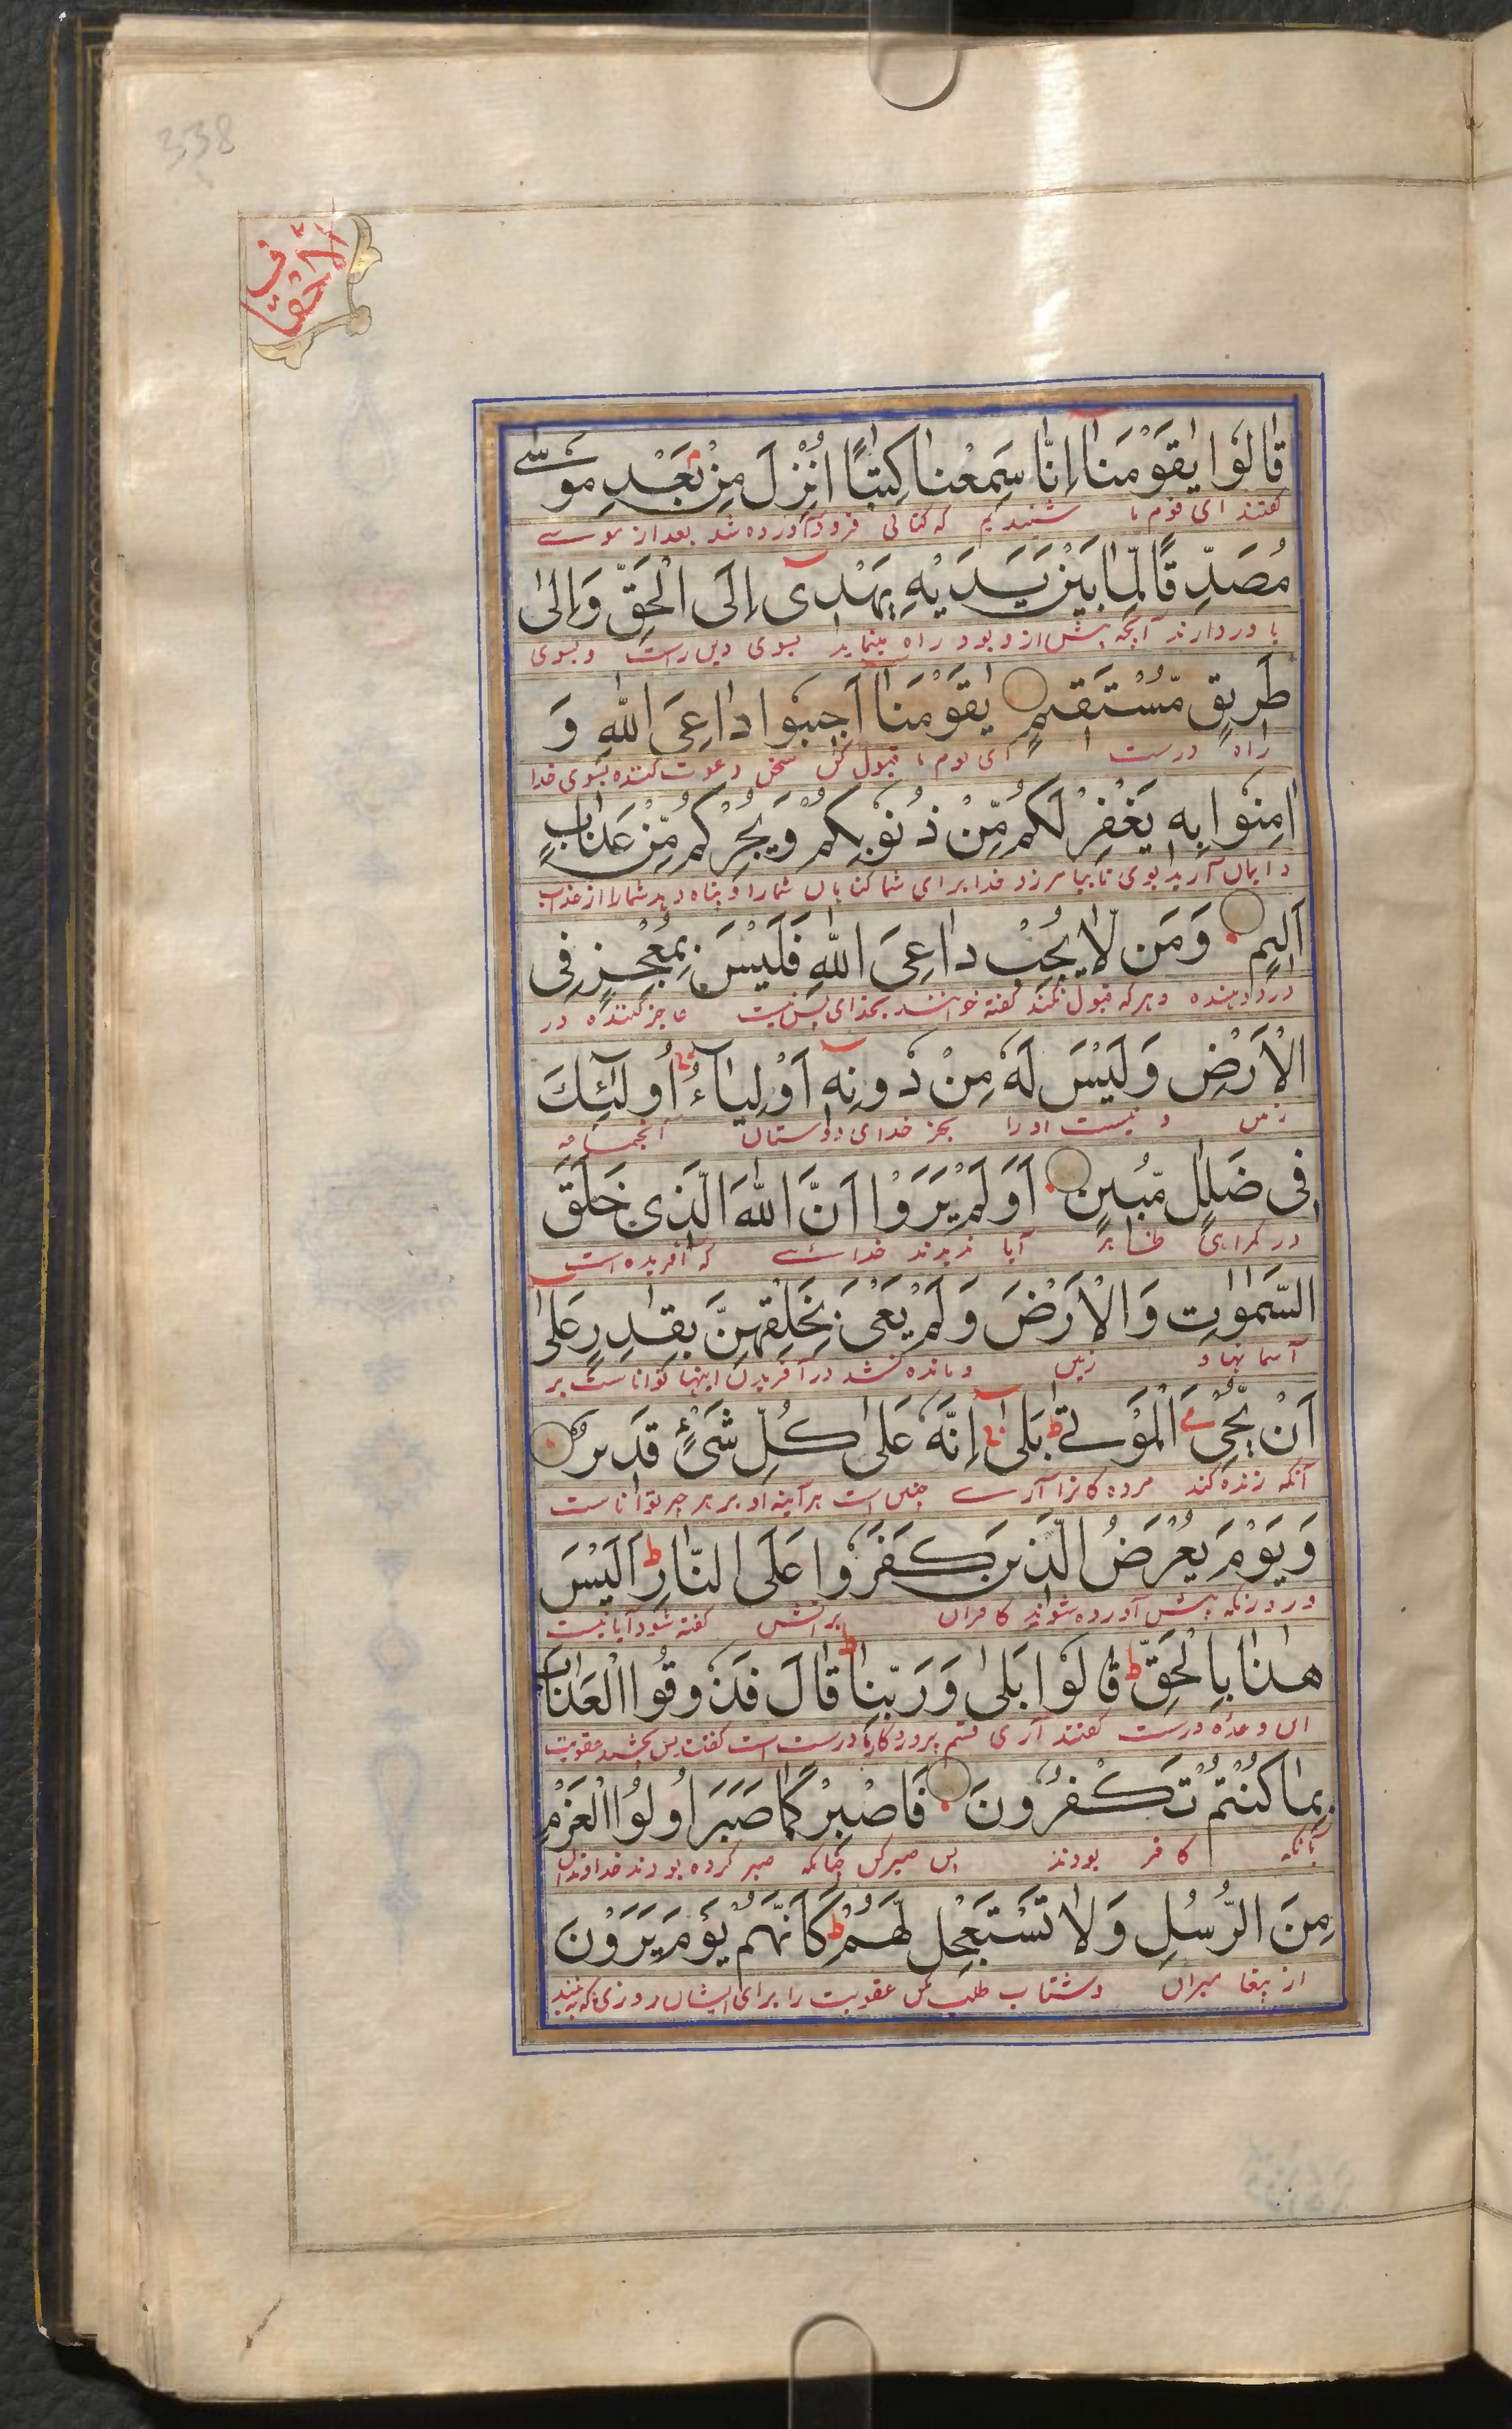 338
الاحقاف
قَالُوا يٰقَوْمَنَا إِنَّا سَمِعْنَا كِتٰبًا اُنْزِلَ مِنْ بَعْدِ مُوْسٰے
گفتند ای قوم ما شنیدیم که کتابی فرود آورده شد بعد از موسے
مُصَدِّقًا لِّمَا بَيْنَ يَدَيْهِ يَهْدِىْ اِلَى الْحَقِّ وَاِلٰى
باور دارند آنچه پیش از و بود راه مینماید بسوی دین راست و بسوی
طَرِيقٍ مُّسْتَقِيمٍ يٰقَوْمَنَا اَجِيبُوا دَاعِىَ اللّٰهِ وَ
راه درست ای قوم ما قبول کن سخن دعوت کننده بسوی خدا
اٰمِنُوا بِهٖ يَغْفِرْ لَكُمْ مِّنْ ذُنُوبِكُمْ وَيُجِرْكُمْ مِّنْ عَذَابٍ
و ایمان آرید بوی تا بیامرزد خدا برای شما گناهان شما را و پناه دهد شما را از عذاب
اَلِيمٍ وَمَن لَّا يُجِبْ دَاعِىَ اللّٰهِ فَلَيْسَ بِمُعْجِزٍ فِى
درد دهنده و هرکه قبول نکند گفته خوانند بخدای پس نیست عاجز کننده در
الْاَرْضِ وَلَيْسَ لَهٗ مِنْ دُونِهٖ اَوْلِيَآءُ اُولٰٓئِكَ
زمین و نیست او را بجز خدای دوستان آنجماعه
فِى ضَلٰلٍ مُّبِينٍ اَوَلَمْ يَرَوْا اَنَّ اللّٰهَ الَّذِى خَلَقَ
در گمراهی ظاهر آیا ندیدند خدائے که آفریده است
السَّمٰوٰتِ وَالْاَرْضَ وَلَمْ يَعْىَ بِخَلْقِهِنَّ بِقٰدِرٍ عَلٰى
آسمانها و زمین و مانده نشد در آفریدن اینها توانا ست بر
اَنْ يُّحْيِىَ الْمَوْتٰے بَلٰى اِنَّهٗ عَلٰى كُلِّ شَىْءٍ قَدِيرٌ
آنکه زنده کند مرده گانرا آرے چنین است هرآینه او بر هر چیز توانا ست
وَيَوْمَ يُعْرَضُ الَّذِينَ كَفَرُوا عَلَى النَّارِ اَلَيْسَ
و روزیکه پیش آورده شوند کافران بر آتش گفته شود آیا نیست
هٰذَا بِالْحَقِّ قَالُوا بَلٰى وَرَبِّنَا قَالَ فَذُوقُوا الْعَذَابَ
این وعده درست گفتند آری قسم پروردگار ما درست است گفت پس بچشید عقوبت
بِمَا كُنْتُمْ تَكْفُرُونَ فَاصْبِرْ كَمَا صَبَرَ اُولُوا الْعَزْمِ
بآنکه کافر بودند پس صبر کن چنانکه صبر کرده بودند خداوندان
مِنَ الرُّسُلِ وَلَا تَسْتَعْجِل لَّهُمْ كَاَنَّهُمْ يَوْمَ يَرَوْنَ
از پیغامبران و شتاب طلب مکن عقوبت را برای ایشان روزی که بینند